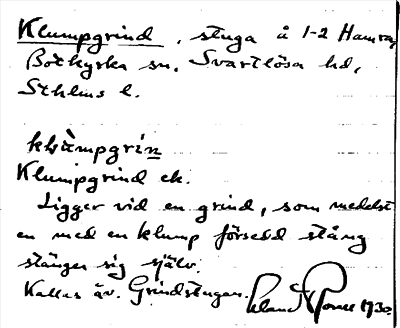 Klumpgrind, stuga å 1-2 Hamra,
Botkyrka sn, Svartlösa hd,
Sthlms l.
klùmpgrin
Klumpgrind ek.
Ligger vid en grind, som medelst
en med en klump försedd stång
stänger sig själv.
Kallas äv. Grindstugan.
1930